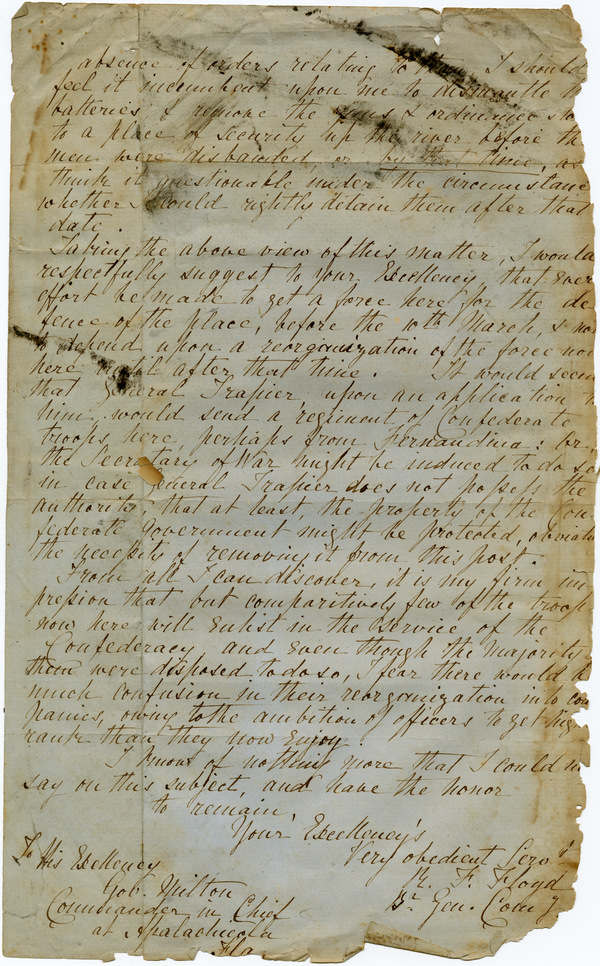 absence of orders relating to them, I should
feel it incumbent upon me to dismantle th
batteries & remove the guns & ordinance sto
to a place of security up the river before th
men were disbanded or by that time, as
think it questionable under the circumstance
whether I could rightly detain them after that
date.
Taking the above view of this matter, I would
respectfully suggest to Your Excellency, that ever
effort be made to get a force here for the de
fence of the place, before the 10th March, & not
to depend upon a reorganization of the force now
here until after that time. It would seem
that General Trapier, upon an application to
him, would send a regiment of Confederate
troops here, perhaps from Fernandina: or,
the Secretary of War might be induced to do so
in case General Trapier does not possess the
authority, that at least, the property of the Con
federate Government might be protected, obviati
the necessity of removing it from this post.
From all I can discover, it is my firm im
pression that but comparitively few of the troop
now here will enlist in the service of the
Confederacy, and even though the majority
them were disposed to do so, I fear there would b
much confusion in their reorganization into com
panies, owing to the ambition of officers to get high
rank than they now enjoy.
I know of nothing more that I could
say on this subject, and have the honor
to remain,
Your Excellency's
Very obedient Servt
R. F. Floyd
Br. Gen. Comg.
To His Excellency
Gov. Milton
Commander in Chief
at Apalachicola
Fla